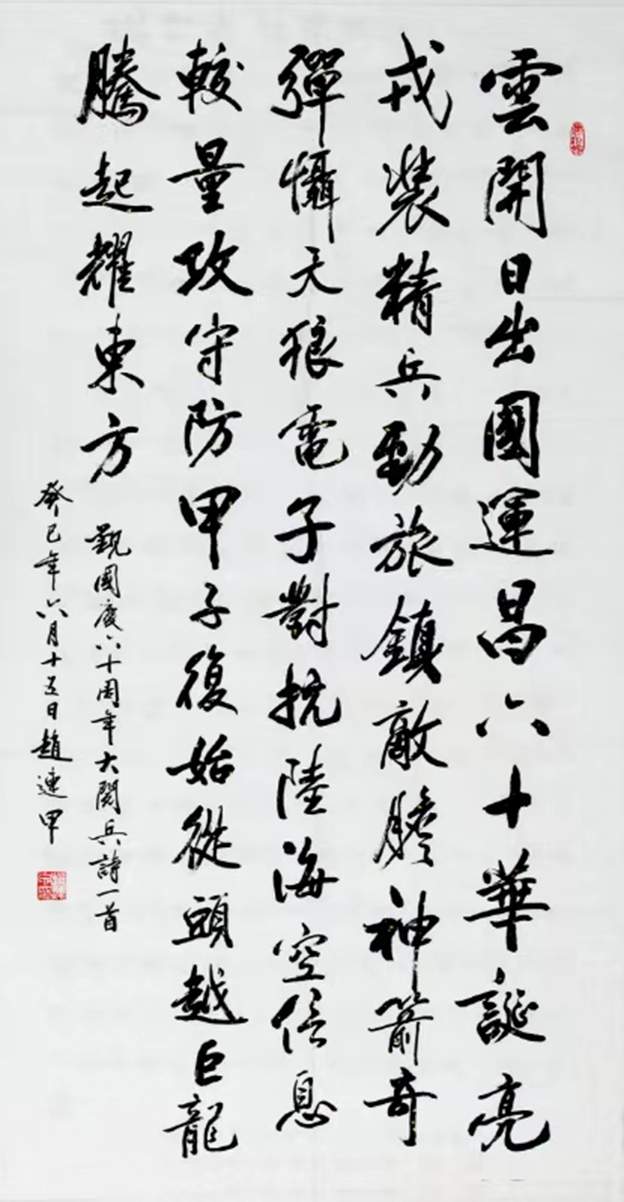 雲開日出國運昌六十華誕亮
戎裝精兵勁旅鎮敵膽神箭奇
彈懾天狼電子對抗陸海空信息
較量攻守防甲子復始從頭越巨龍
騰起耀東方
觀國慶六十周年大閱兵詩一首
癸巳年六月十五日趙連甲